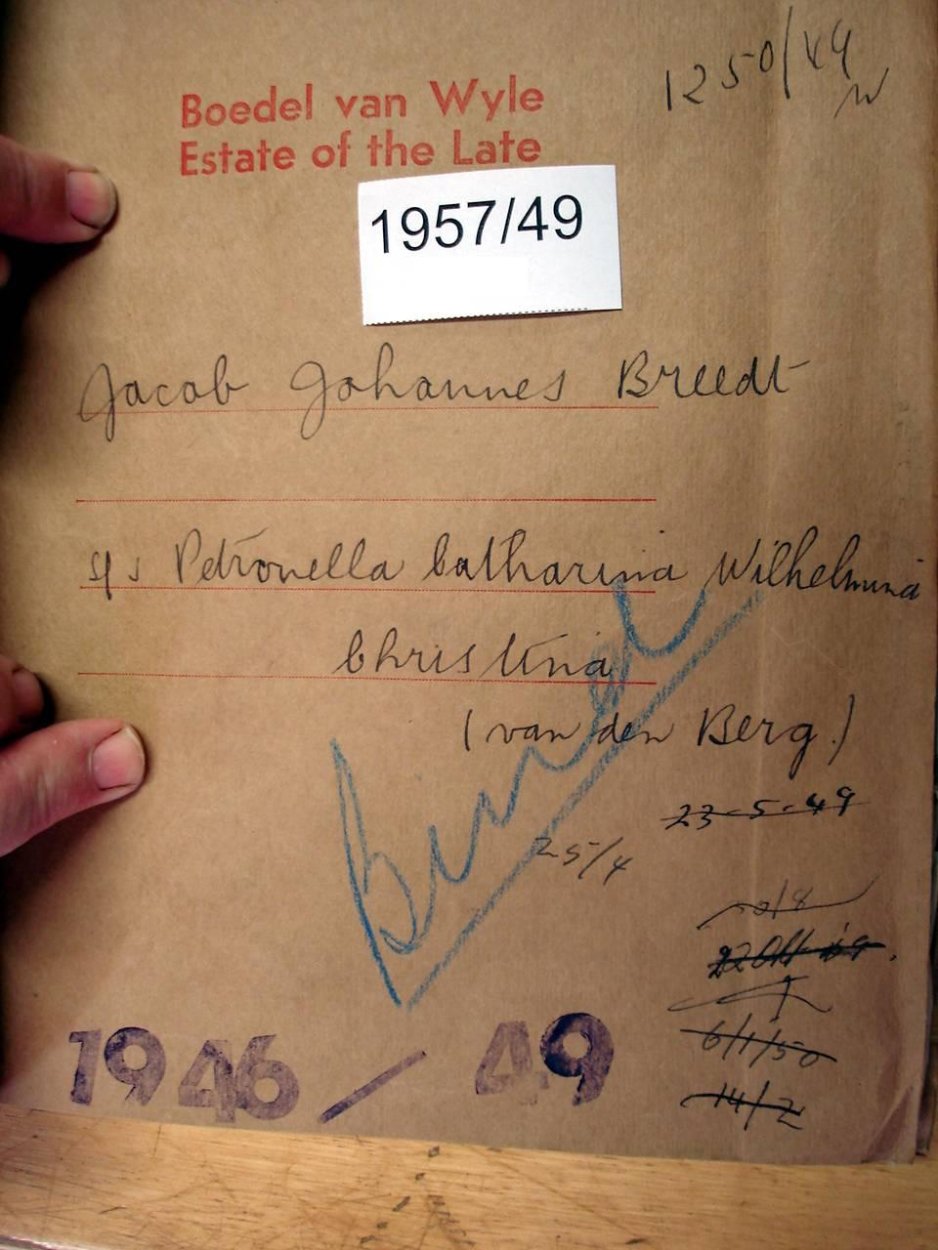 1250/49
Boedel van Wyle
Estate of the Late
1957/49
Jacob Johannes Breedt
s/s Petronella Catharina Wilhelmina
Christina
(van den Berg.)
23-5-49
25/4
6/1/50
14/2
1946/49